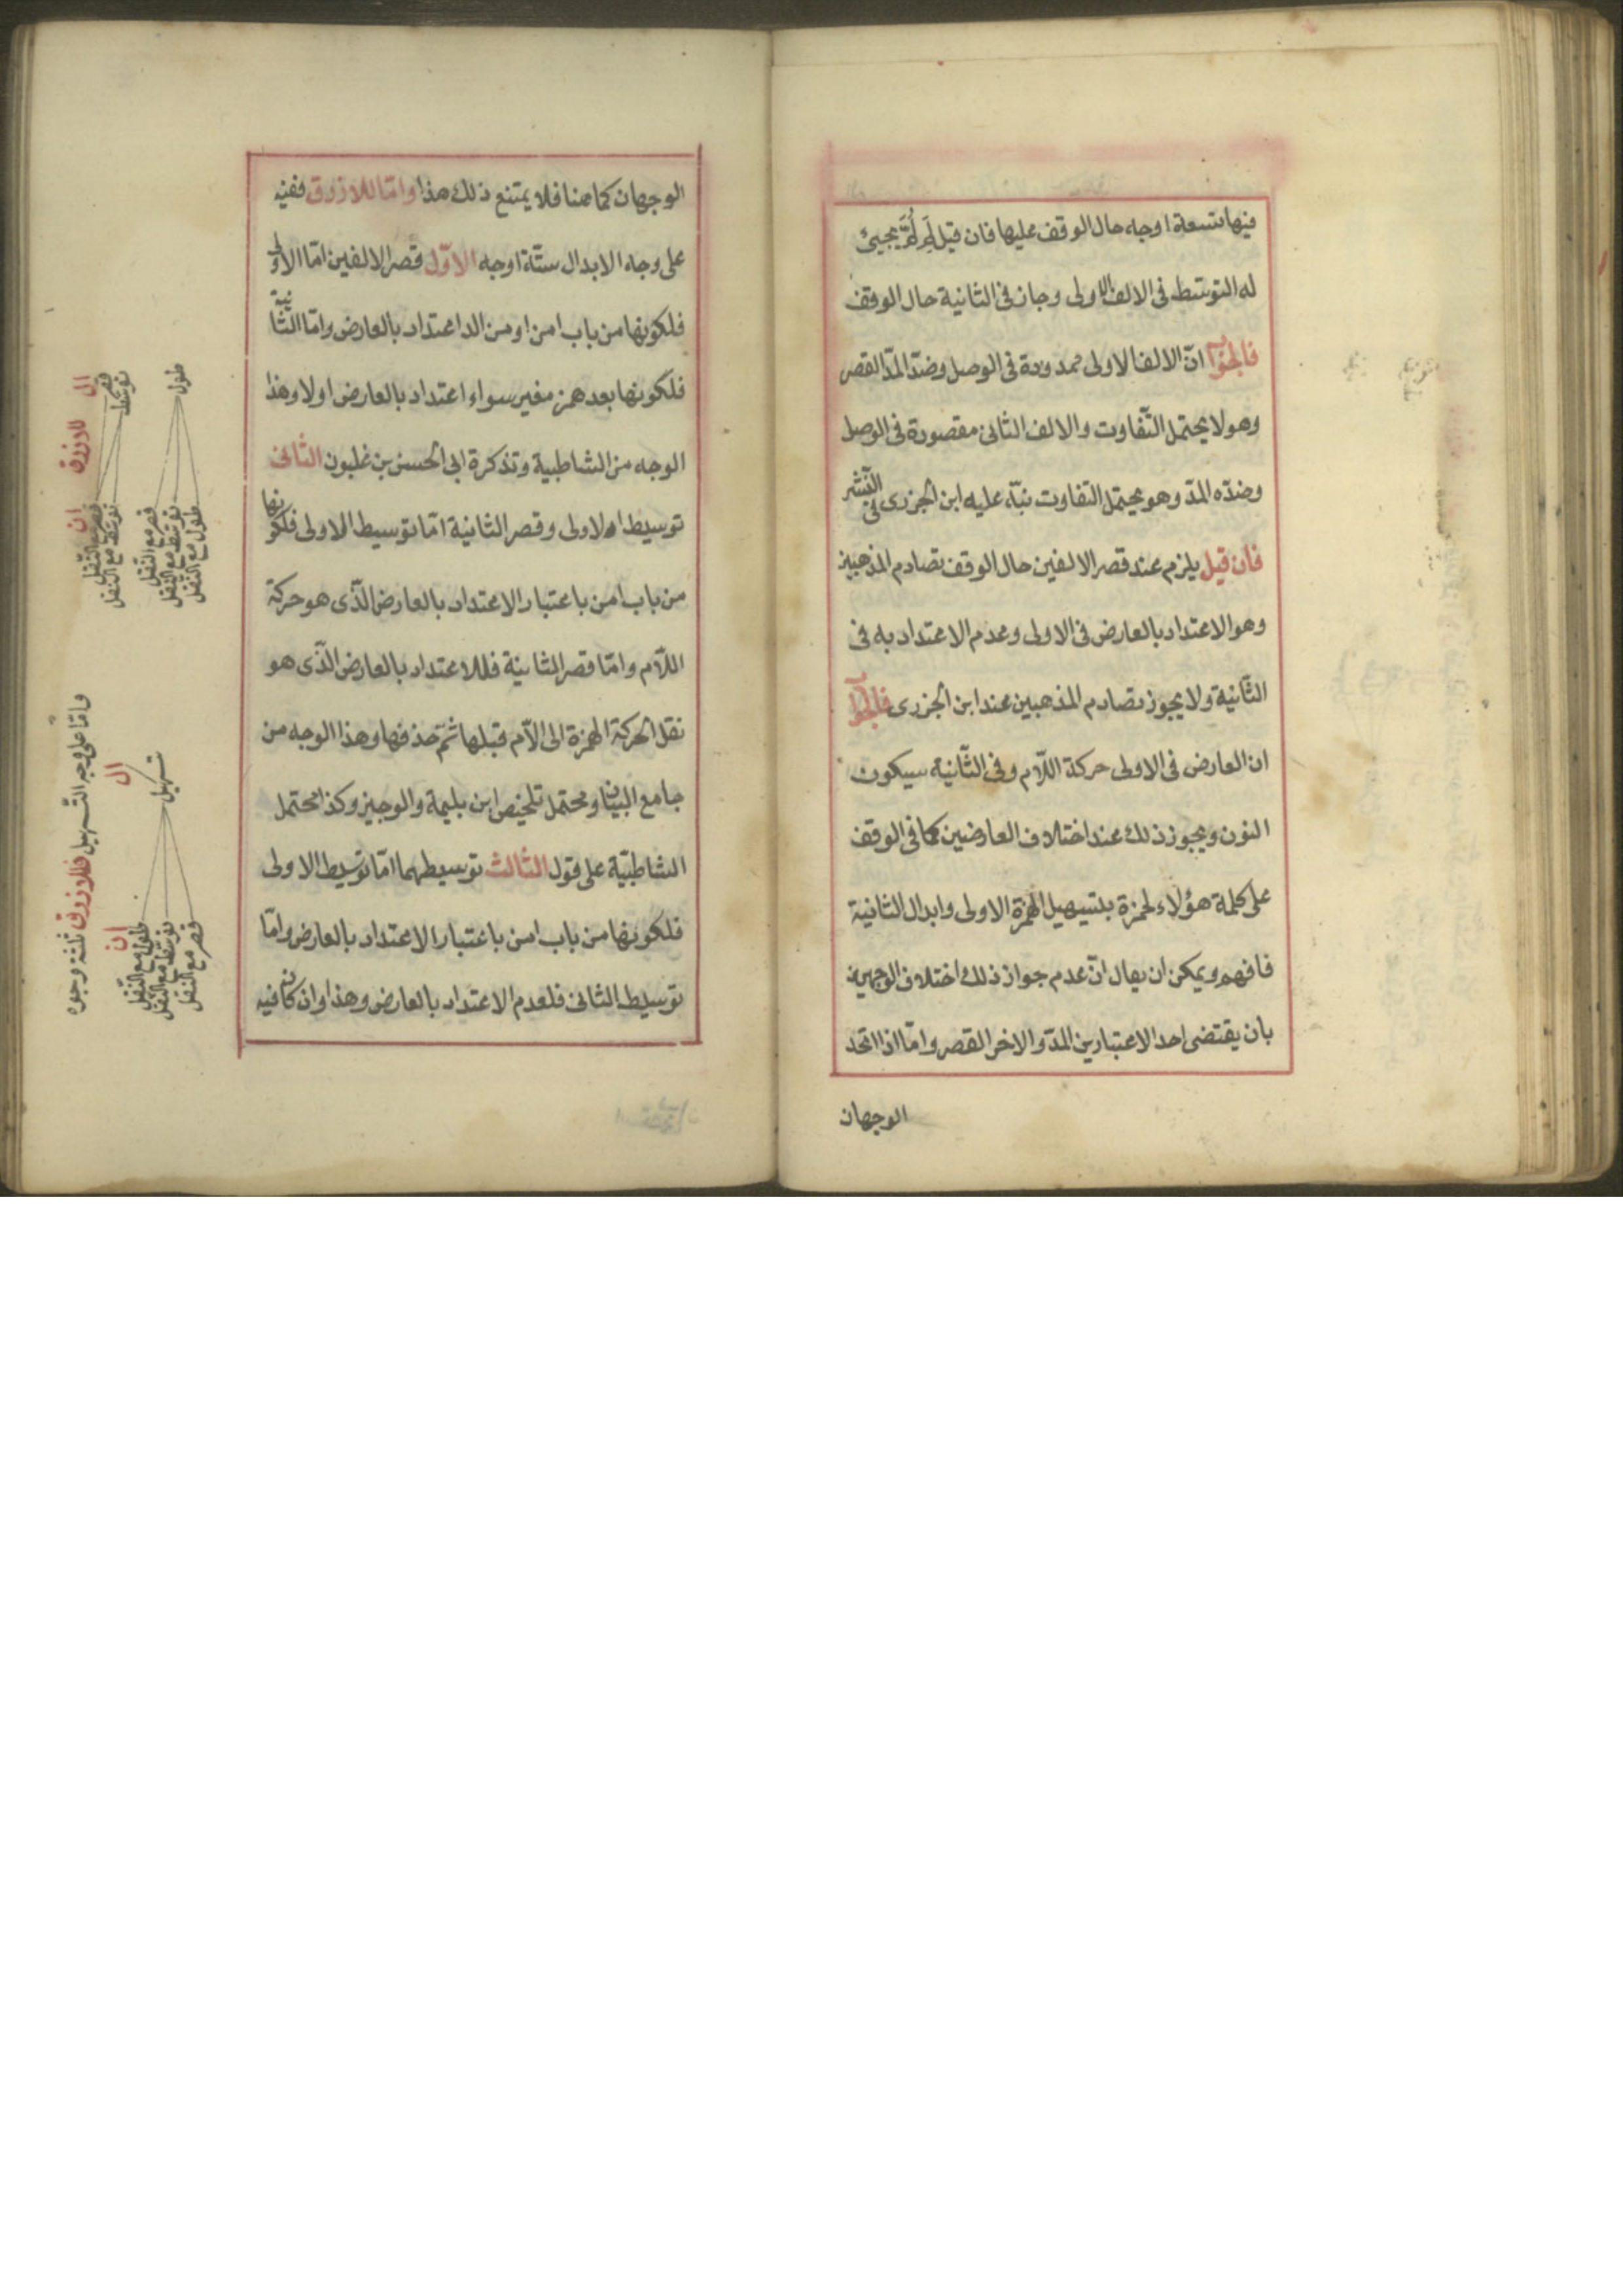 فيها تسعة اوجه حال الوقف عليها فان قيل لم لم يجيئ
له التوسط فى الالف الاولى وجاز فى الثانية حال الوقف
فالجواب انّ الالف الاولى ممدودة فى الوصل وضدّ المدّ القصر
وهو لا يحتمل التّفاوت والالف الثانى مقصورة فى الوصل
وضدّه المدّ وهو يحتمل التفاوت نبّه عليه ابن الجزرى فى النّشر
فان قيل يلزم عند قصر الالفين حال الوقف تصادم المذهبين
وهو الاعتداد بالعارض فى الاولى وعدم الاعتداد به فى
الثّانية ولا يجوز تصادم المذهبين عند ابن الجزرى فالجواب
ان العارض فى الاولى حركة اللّام وفى الثّانية سكون
النون ويجوز ذلك عند اختلاف العارضين كما فى الوقف
على كلمة هؤلاء لحمزة بتسهيل الهمزة الاولى وابدال الثانية
فافهم ويمكن ان يقال انّ عدم جواز ذلك اختلاف الوجهين
بان يقتضى احد الاعتبارين المدّ والاخر القصر وامّا اذا اتحد
الوجهان
الوجهان كما هنا فلا يمتنع ذلك هذا وامّا للازرق ففيه
على وجه الابدال ستّة اوجه الاوّل قصر الالفين امّا الاولى
فلكونها من باب امن او من الد اعتداد بالعارض وامّا الثّانية
فلكونها بعد همز مغير سواء اعتداد بالعارض اولا وهذا
الوجه من الشاطبية وتذكرة ابى الحسن بن غلبون الثانى
توسيط الاولى وقصر الثانية امّا توسيط الاولى فلكونها
من باب امن باعتبار الاعتداد بالعارض الّذى هو حركة
اللّام وامّا قصر الثانية فللاعتداد بالعارض الّذى هو
نقل الحركة الهمزة الى الّام قبلها ثمّ حذفها وهذا الوجه من
جامع البيان ومحتمل تلخيص ابن بليمة والوجيز وكذا محتمل
الشاطبيّة على قول الثالث توسيطهما امّا توسيط الاولى
فلكونها من باب امن باعتبار الاعتداد بالعارض وامّا
توسيط الثانى فلعدم الاعتداد بالعارض وهذا وان كان فيه
للازرق
ال
قصر
توسّط
طول
ان
قصر مع النّقل
توسّط مع النّقل
قصر مع النّقل
توسّط مع النّقل
طول مع النّقل
وامّا على وجه التّسهيل فللازرق ثلثة وجوه
ال
تسهيل
ان
طول مع النّقل
توسّط مع النّقل
قصر مع النّقل